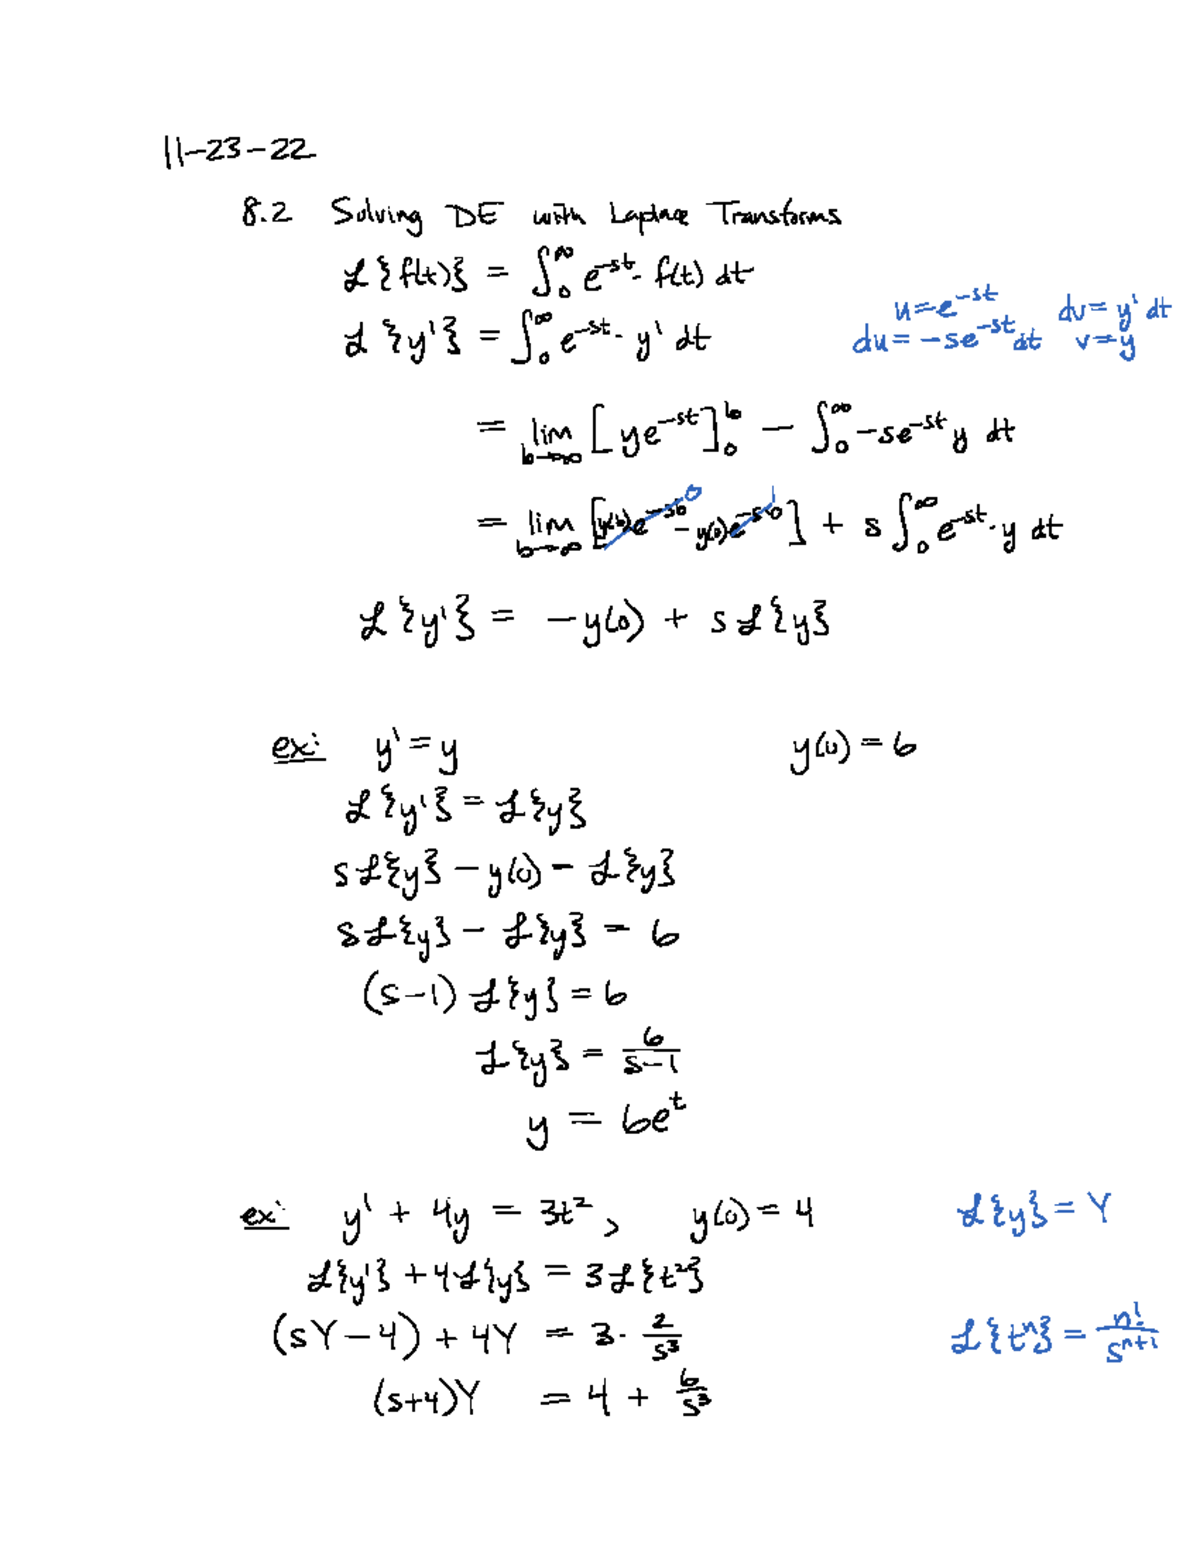 11-23-22
8.2 Solving DE with Laplace Transforms
ℒ{f(t)} = ∫₀^∞ e^(-st) · f(t) dt
ℒ{y'} = ∫₀^∞ e^(-st) · y' dt
u = e^(-st) dv = y' dt
du = -se^(-st) dt v = y
= lim b→∞ [ye^(-st)]₀^b - ∫₀^∞ -se^(-st) y dt
= lim b→∞ [y(b)e^(-sb) 0 - y(0)e^(-s·0) 1] + s∫₀^∞ e^(-st) · y dt
ℒ{y'} = -y(0) + sℒ{y}
ex: y' = y y(0) = 6
ℒ{y'} = ℒ{y}
sℒ{y} - y(0) - ℒ{y}
sℒ{y} - ℒ{y} = 6
(s-1) ℒ{y} = 6
ℒ{y} = 6/(s-1)
y = 6e^t
ex: y' + 4y = 3t², y(0) = 4 ℒ{y} = Y
ℒ{y'} + 4ℒ{y} = 3ℒ{t²}
(sY - 4) + 4Y = 3 · 2/s³ ℒ{tⁿ} = n!/s^(n+1)
(s+4)Y = 4 + 6/s³